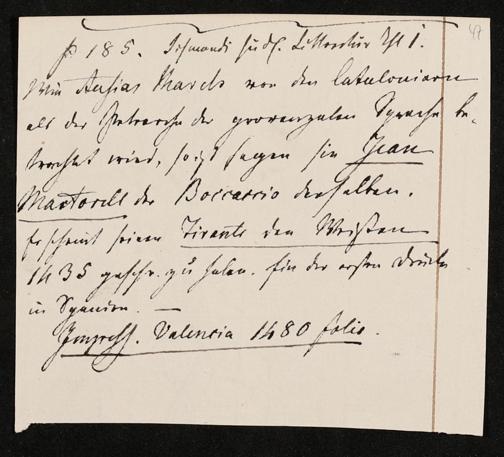 47
p 185. Sismondi südl. Litteratur Thl 1.
Wie Ausias March von den Cataloniern
als der Petrarcha der provenzalen Sprache be-
trachtet wird, so ist sagen sie Jean
Martorell der Boccaccio derselben.
Er scheint seinen Tirante den Weißen
1435 geschr. zu haben. Ein der ersten Drucke
in Spanien. —
Impress. Valencia 1480 folio.